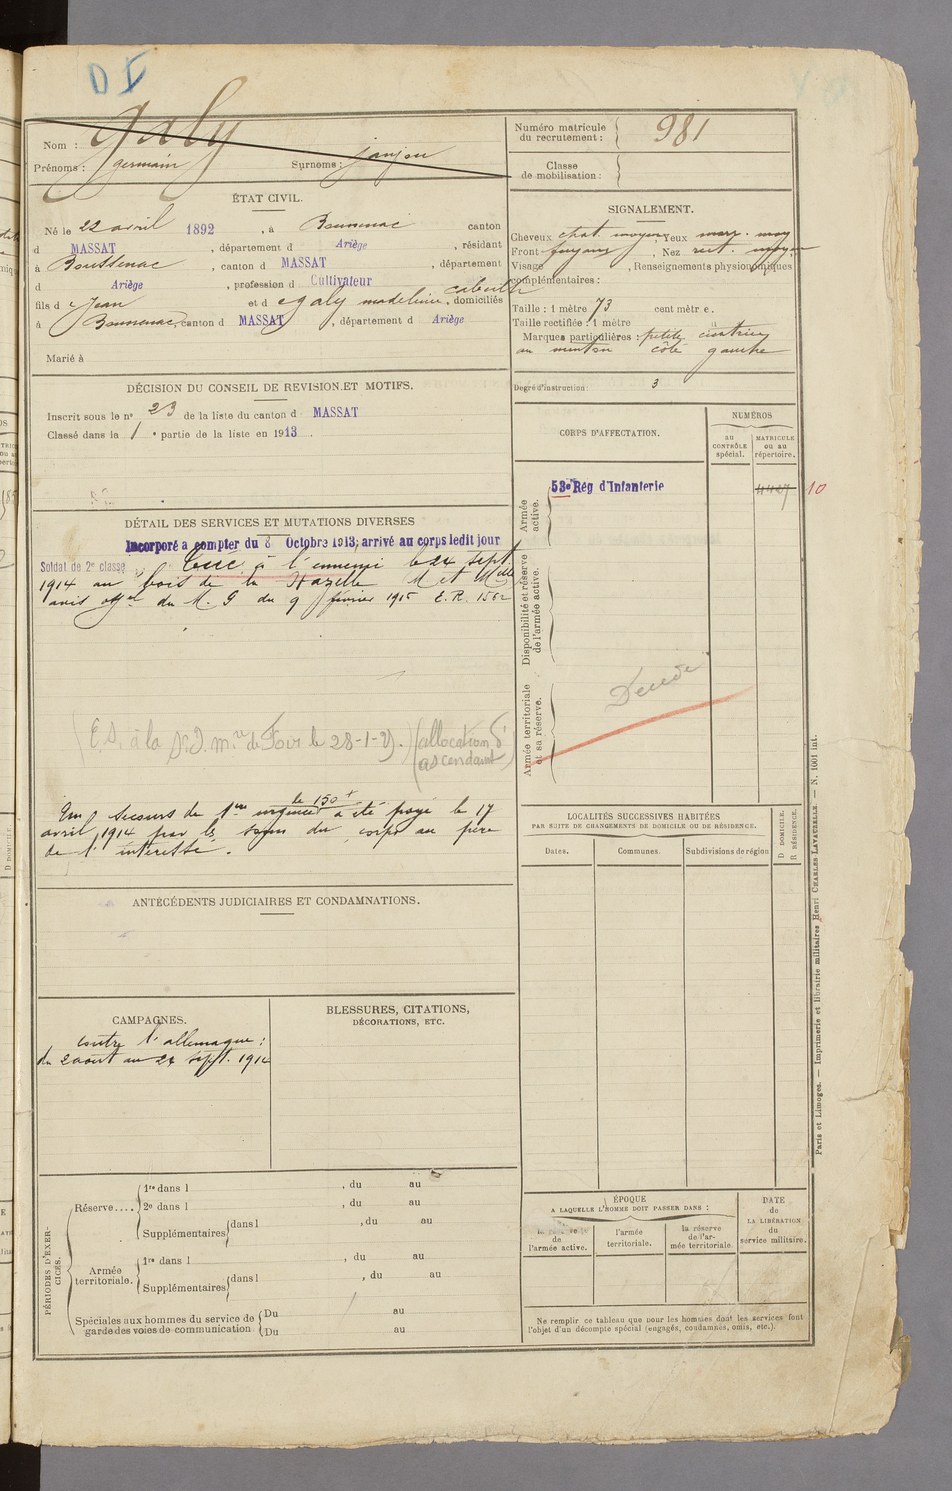 D I
Nom : Galy
Prénoms : germain Surnoms : janjou
Numéro matricule
du recrutement : 981
Classe
de mobilisation :
ÉTAT CIVIL.
Né le 22 avril 1892, à Boussenac canton
d MASSAT, département d Ariège, résidant
à Boussenac, canton d MASSAT, département
d Ariège, profession d Cultivateur
fils d e Jean et d e galy madeleine, domiciliés
à Boussenac, canton d MASSAT, département d Ariège
Marié à
SIGNALEMENT.
Cheveux chat. moyens, Yeux marr. moy
Front fuyant, Nez rect. moyen
Visage , Renseignements physionomiques
complémentaires :
Taille : 1 mètre 73 cent mètr e.
Taille rectifiée : 1 mètre
Marques particulières : petite cicatrice
au menton côté gauche
Degré d'instruction : 3
DÉCISION DU CONSEIL DE REVISION ET MOTIFS.
Inscrit sous le n° 23 de la liste du canton d MASSAT
Classé dans la 1 e partie de la liste en 1913.
DÉTAIL DES SERVICES ET MUTATIONS DIVERSES
Incorporé a compter du 8 Octobre 1913; arrivé au corps ledit jour
Soldat de 2e classe Tué à l'ennemi le 24 sept.
1914 au bois de la Hazelle M et Mlle
avis offel du M. G du 9 février 1915 E.R. 1562
(E.S. à la de Foix le 28-1-2 .) (allocation d'
ascendant)
de 150 f
Un secours de 1ère urgence a été payé le 17
avril 1914 par les soins du corps au père
de l'intéressé.
ANTÉCÉDENTS JUDICIAIRES ET CONDAMNATIONS.
CAMPAGNES.
contre l'allemagne :
du 2 aout au 24 sept. 1914
BLESSURES, CITATIONS,
DÉCORATIONS, ETC.
PÉRIODES D'EXER-
CICES.
Réserve....
1re dans l , du au
2e dans l , du au
Supplémentaires dans l , du au
Armée
territoriale.
1re dans l , du au
Supplémentaires dans l , du au
Spéciales aux hommes du service de
garde des voies de communication:
Du au
Du au
CORPS D'AFFECTATION.
NUMÉROS
au
CONTRÔLE
spécial.
MATRICULE
ou au
répertoire.
Armée
active.
53e Rég d'Infanterie
4427 10
Disponibilité et réserve
de l'armée active.
Armée territoriale
et sa réserve.
LOCALITÉS SUCCESSIVES HABITÉES
PAR SUITE DE CHANGEMENTS DE DOMICILE OU DE RÉSIDENCE.
Dates. Communes. Subdivisions de région
D DOMICILE.
R RÉSIDENCE.
ÉPOQUE
A LAQUELLE L'HOMME DOIT PASSER DANS :
la réserve
de
l'armée active.
l'armée
territoriale.
la réserve
de l'ar-
mée territoriale.
DATE
de
LA LIBÉRATION
du
service militaire.
Ne remplir ce tableau que pour les hommes dont les services font
l'objet d'un décompte spécial (engagés, condamnés, omis, etc.).
Paris et Limoges. — Imprimerie et librairie militaires Henri CHARLES-LAVAUZELLE. — N. 1001 int.